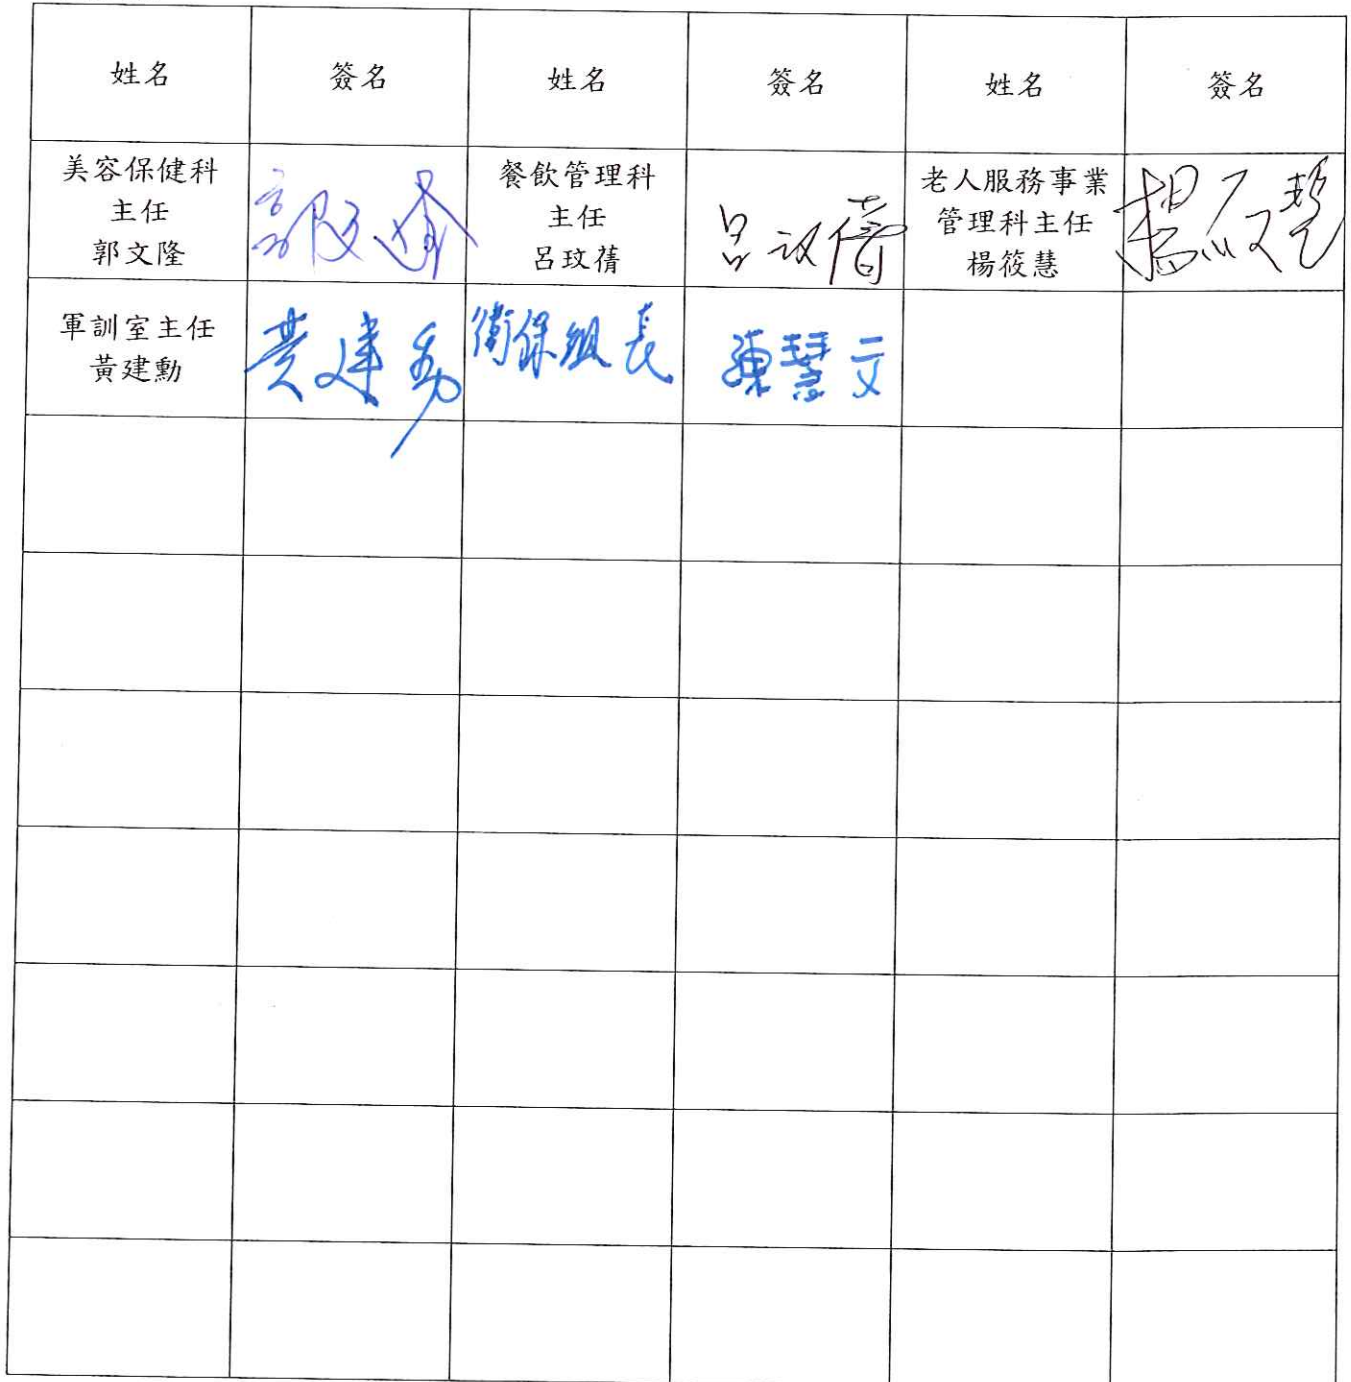 姓名 簽名 姓名 簽名 姓名 簽名
美容保健科
主任
郭文隆
郭文隆
餐飲管理科
主任
呂玟蒨
呂玟蒨
老人服務事業
管理科主任
楊筱慧
楊筱慧
軍訓室主任
黃建勳
黃建勳
衛保組長
陳慧文